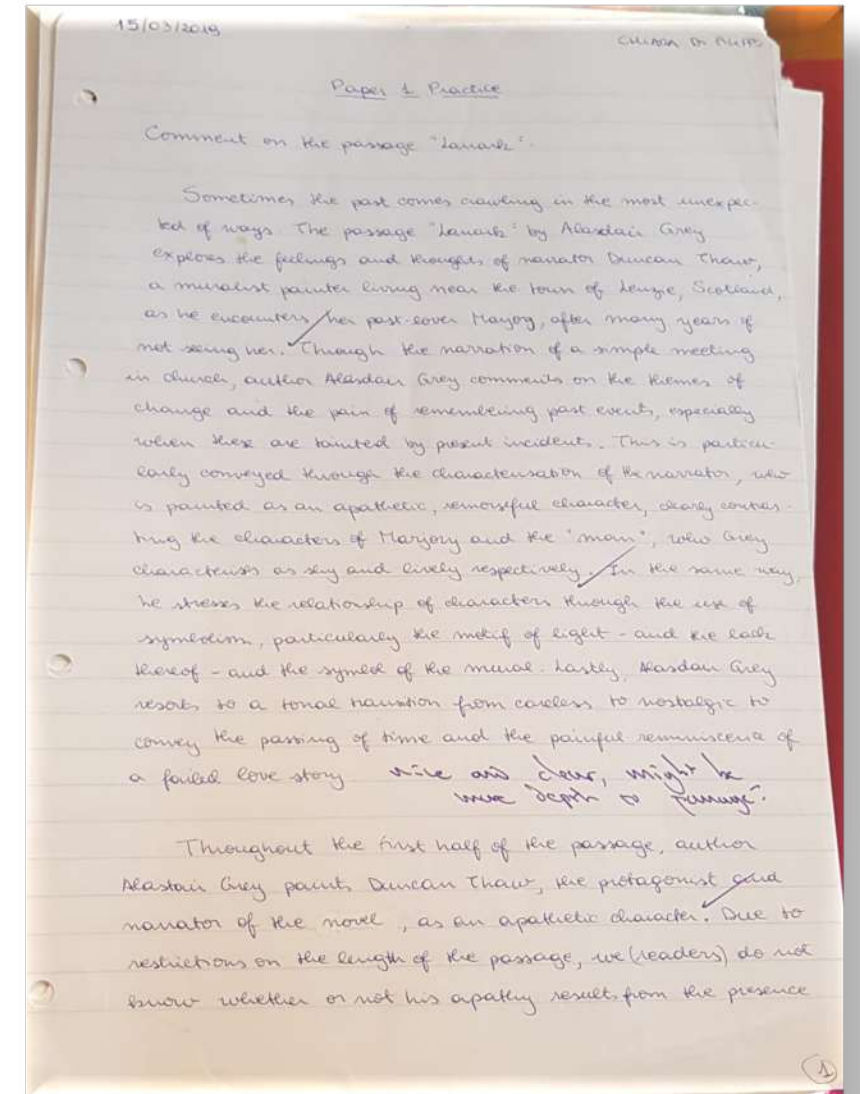 15/03/2019
CHIARA DI
Paper 1 Practice
Comment on the passage "Lanark".
Sometimes the past comes crawling in the most unexpec-
ted of ways. The passage "Lanark" by Alasdair Grey
explores the feelings and thoughts of narrator Duncan Thaw,
a muralist painter living near the town of Lenzie, Scotland,
as he encounters her past-lover Marjory, after many years of
not seeing her. Through the narration of a simple meeting
in church, author Alasdair Grey comments on the themes of
change and the pain of remembering past events, especially
when these are tainted by present incidents. This is particu-
larly conveyed through the characterisation of the narrator, who
is painted as an apathetic, remorseful character, clearly contras-
ting the characters of Marjory and the "man", who Grey
characterises as shy and lively respectively. In the same way,
he stresses the relationship of characters through the use of
symbolism, particularly the motif of light - and the lack
thereof - and the symbol of the mural. Lastly, Alasdair Grey
resorts to a tonal transition from careless to nostalgic to
convey the passing of time and the painful reminiscence of
a failed love story
nice and clear, might be
more depth to passage.
Throughout the first half of the passage, author
Alastair Grey paints Duncan Thaw, the protagonist and
narrator of the novel, as an apathetic character. Due to
restrictions on the length of the passage, we (readers) do not
know whether or not his apathy results from the presence
1